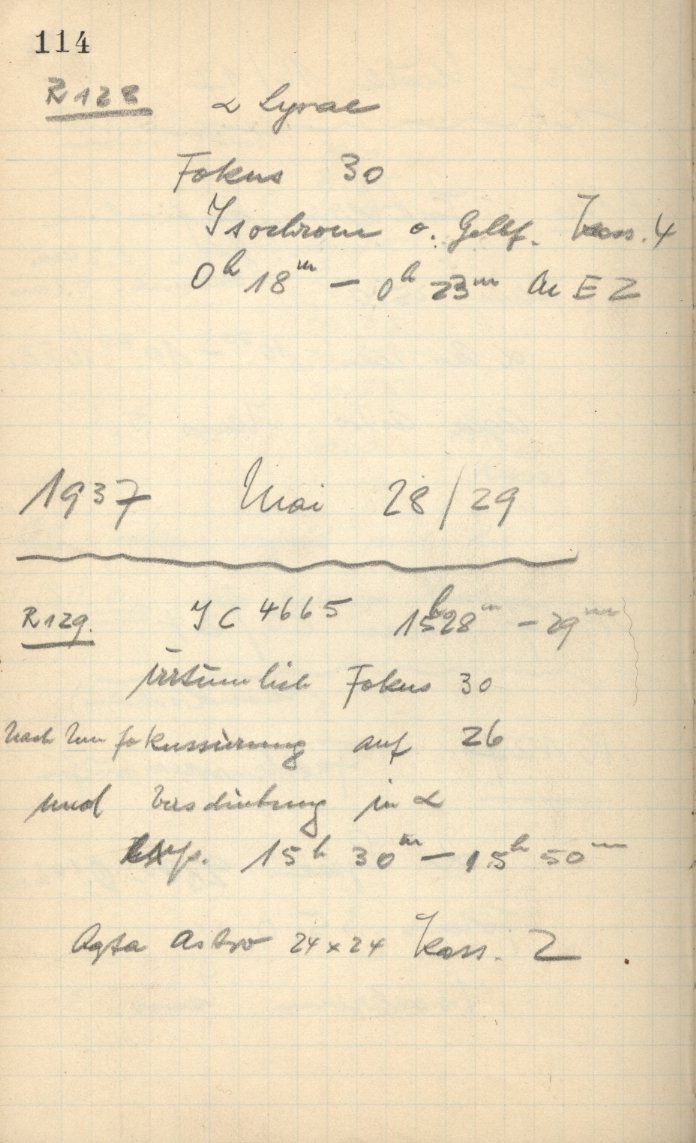 114
R 128 α Lyrae
Fokus 30
Isochrom o. Gelbf. Kass. 4
0h 18m – 0h 23m MEZ
1937 Mai 28/29
R 129. IC 4665 15h28m – 29m
irrtümlich Fokus 30
nach Umfokussierung auf 26
und Verschiebung in α
Exp. 15h 30m – 15h 50m
Agfa Astro 24 x 24 Kass. 2